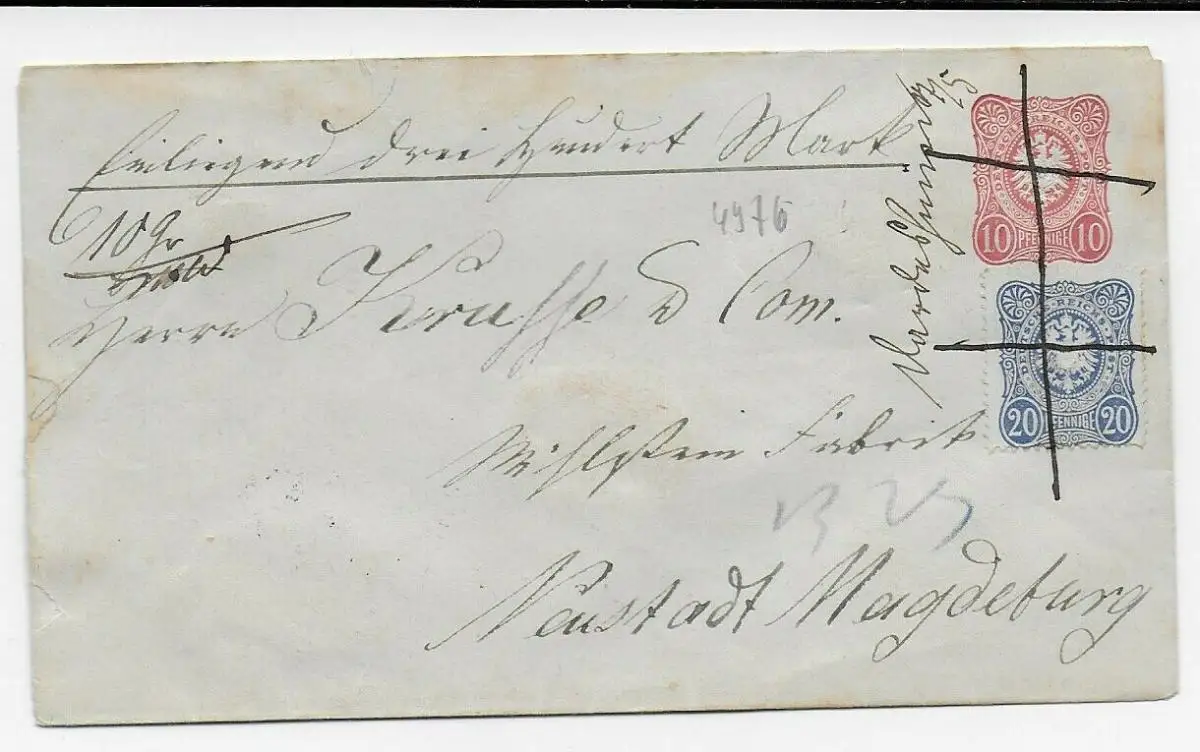 Einliegend drei Hundert Mark
10 Gr
4976
Herrn Krusse & Com.
Mühlstein Fabrik
Neustadt Magdeburg
DEUTSCHE REICHS-POST
10 PFENNIGE 10
DEUTSCHE REICHS-POST
20 PFENNIGE 20